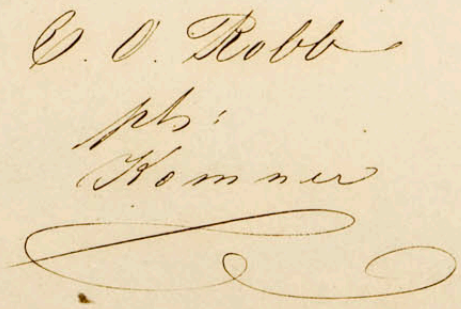 C. O. Robb
pls:
Komner